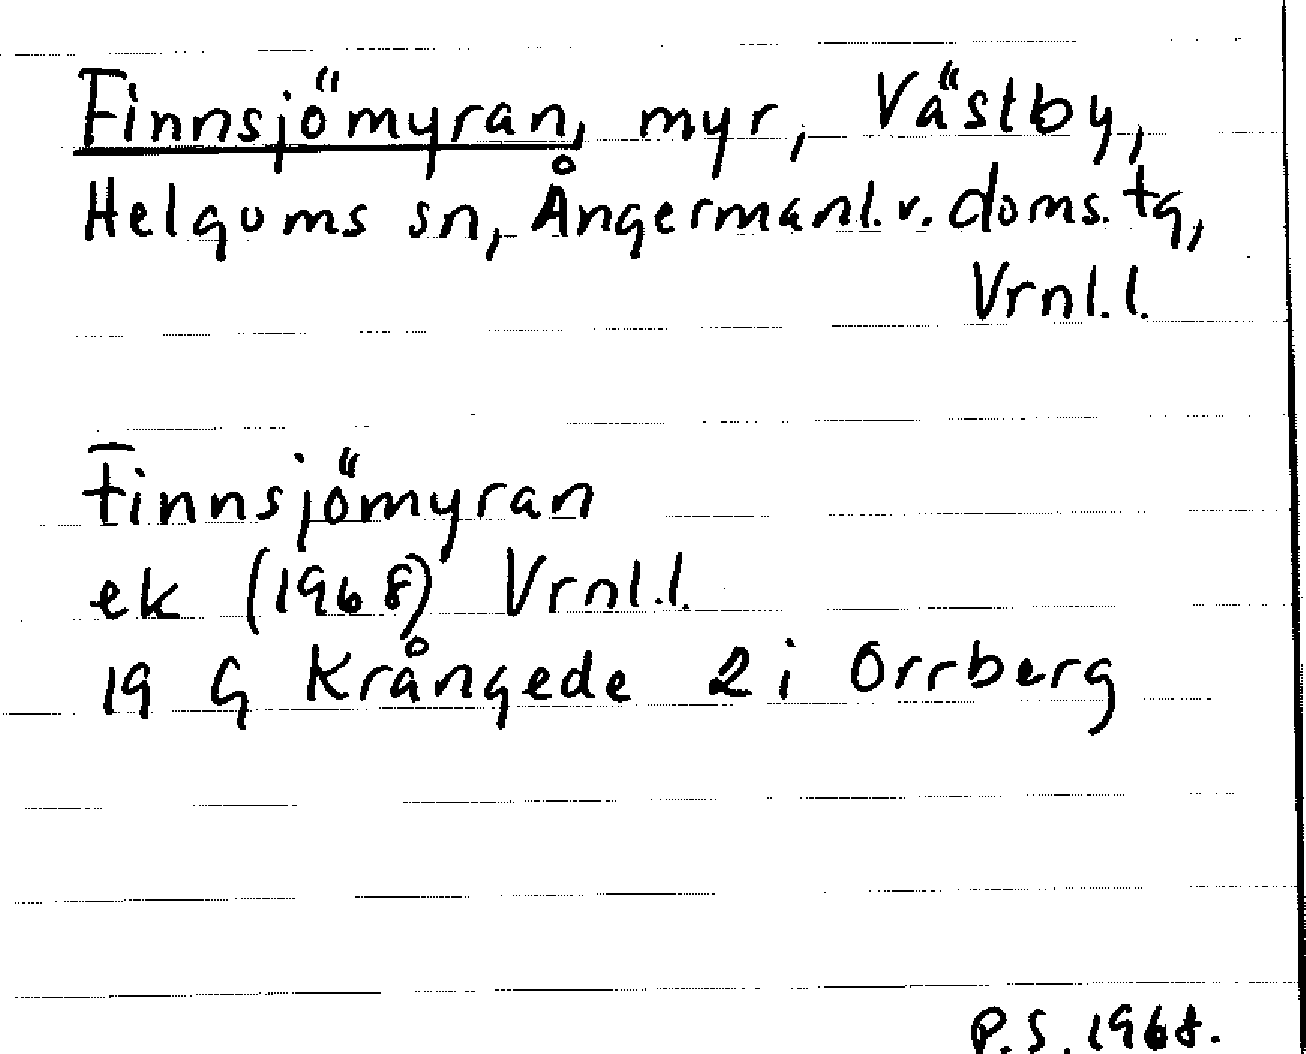 Finnsjömyran, myr, Västby,
Helgums sn, Ångermanl. v. doms. tg,
Vrnl. l.
Finnsjömyran
ek (1968) Vrnl. l.
19 G Krångede 2 i Orrberg
P.S. 1968.